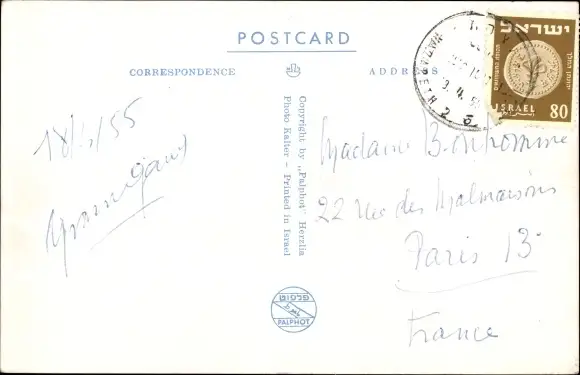 POSTCARD
CORRESPONDENCE
ADDRESS
ישראל
ISRAEL 80
Copyright by „Palphot" Herzlia
Photo Kalter – Printed in Israel
פלפוט
PALPHOT
Madame Bonhomme
22 rue des Malmaisons
Paris 13e
France